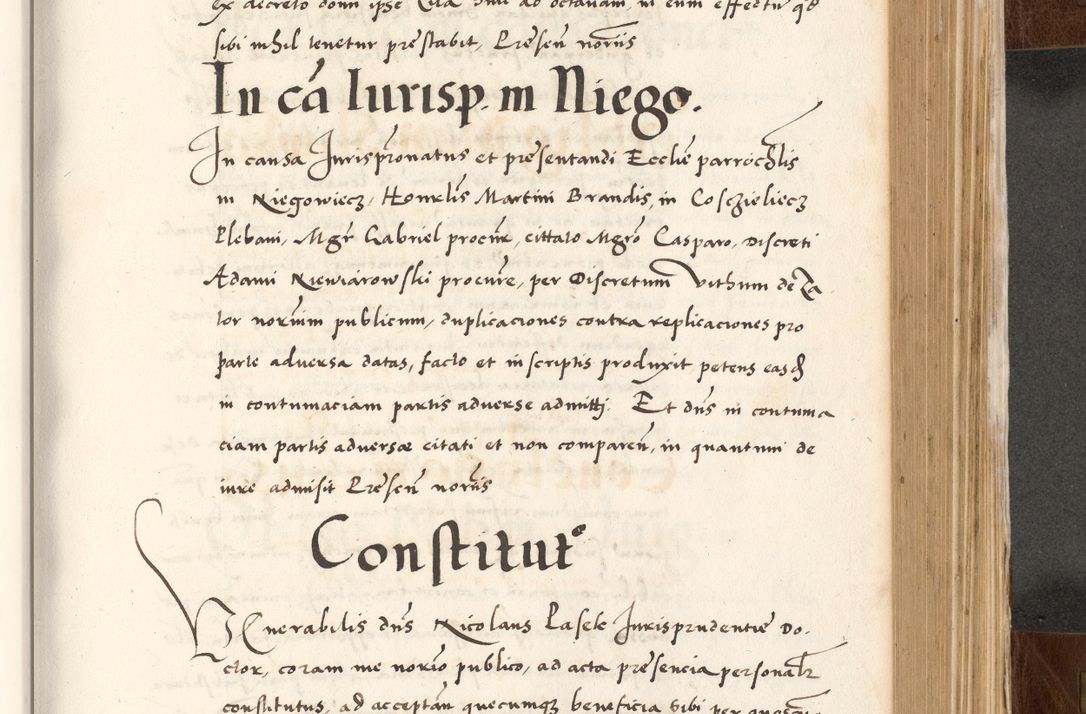 Ex decreto domi ipse
sibi nihil tenetur prestabit, Presen̄ norīs
In cā Iurisp. in Niego.
In causa Jurisprōnatus et presentandi Ecclīe parrochlīs
in Niegowiecz, Honrlīs Martini Brandis, in Cosczieliecz
Plebani, Mgr̄ Gabriel procūr, cittato Mgrō Casparo, Discreti
Adami Niewiarowski procūre, per Discretum Vithum de Za
tor norium publicum, duplicaciones contra replicaciones pro
parte adversa datas, facto et in scriptis produxit petens easd̄
in contumaciam partis adverse admitti. Et dn̄s in contuma
ciam partis adversæ citati et non comparen̄, in quantum de
iure admisit Presen̄ norīs
Constitutº
Venerabilis dn̄s Nicolaus Pasek Jurisprudentiē Do.
ctor, coram me norīo publico, ad acta presencia personalr̄
constitutus, ad acceptan̄ quecumqz beneficia sibi per